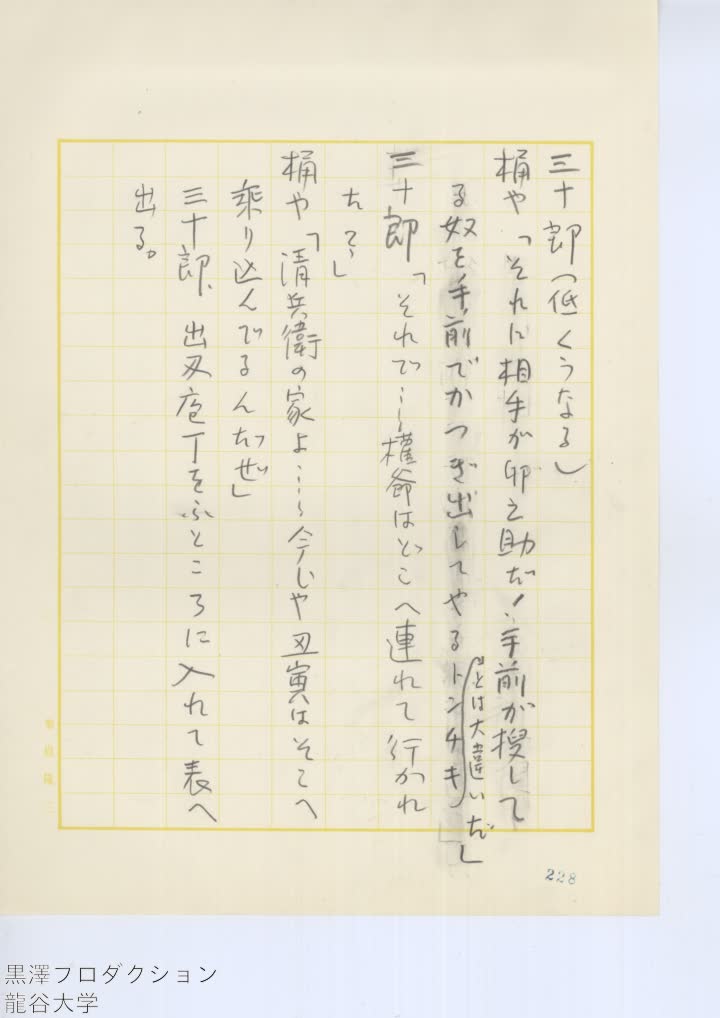 三十郎（低くうなる）
桶や「それに相手が卯之助だ！：手前が捜して
る奴を手前でかつぎ出してやるトンチキ
とは大違いだ」
三十郎「それで…権爺はどこへ連れて行かれ
たァ」
桶や「清兵衛の家よ…今じや丑寅はそこへ
乗り込んでるんだぜ」
三十郎、出刃庖丁をふところに入れて表へ
出る。
228
黒澤プロダクション
龍谷大学